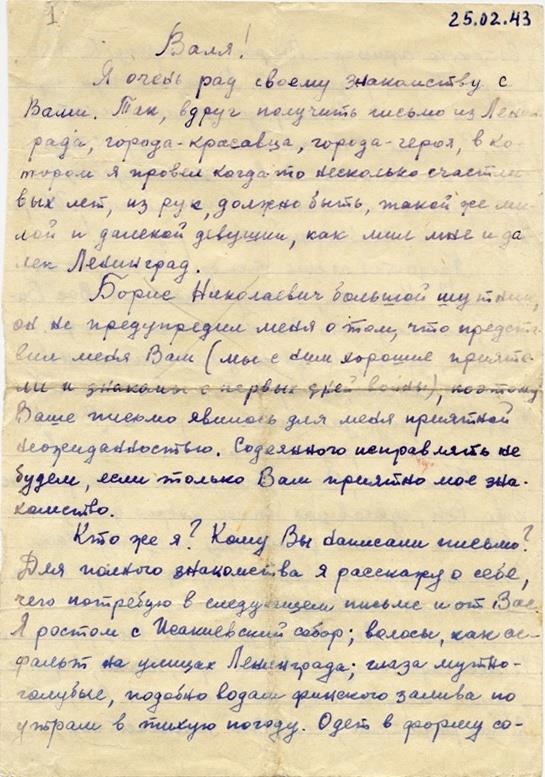 1
25.02.43
Валя!
Я очень рад своему знакомству с
Вами. Так, вдруг получить письмо из Ленин
града, города-красавца, города-героя, в ко-
тором я провел когда то несколько счастли
вых лет, из рук, должно быть, такой же ми-
лой и далекой девушки, как мил мне и да
лек Ленинград.
Борис Николаевич большой шутник,
он не предупредил меня о том, что предста-
вил меня Вам (мы с ним хорошие прияте-
ли и знакомы с первых дней войны), поэтому
Ваше письмо явилось для меня приятной
неожиданностью. Содеянного исправлять не
будем, если только Вам приятно мое зна-
комство.
Кто же я? Кому Вы написали письмо?
Для полного знакомства я расскажу о себе,
чего потребую в следующем письме и от Вас.
Я ростом с Исакиевский собор; волосы, как ас-
фальт на улицах Ленинграда; глаза мутно-
голубые, подобно водам финского залива по
утрам в тихую погоду. Одет в форму со-